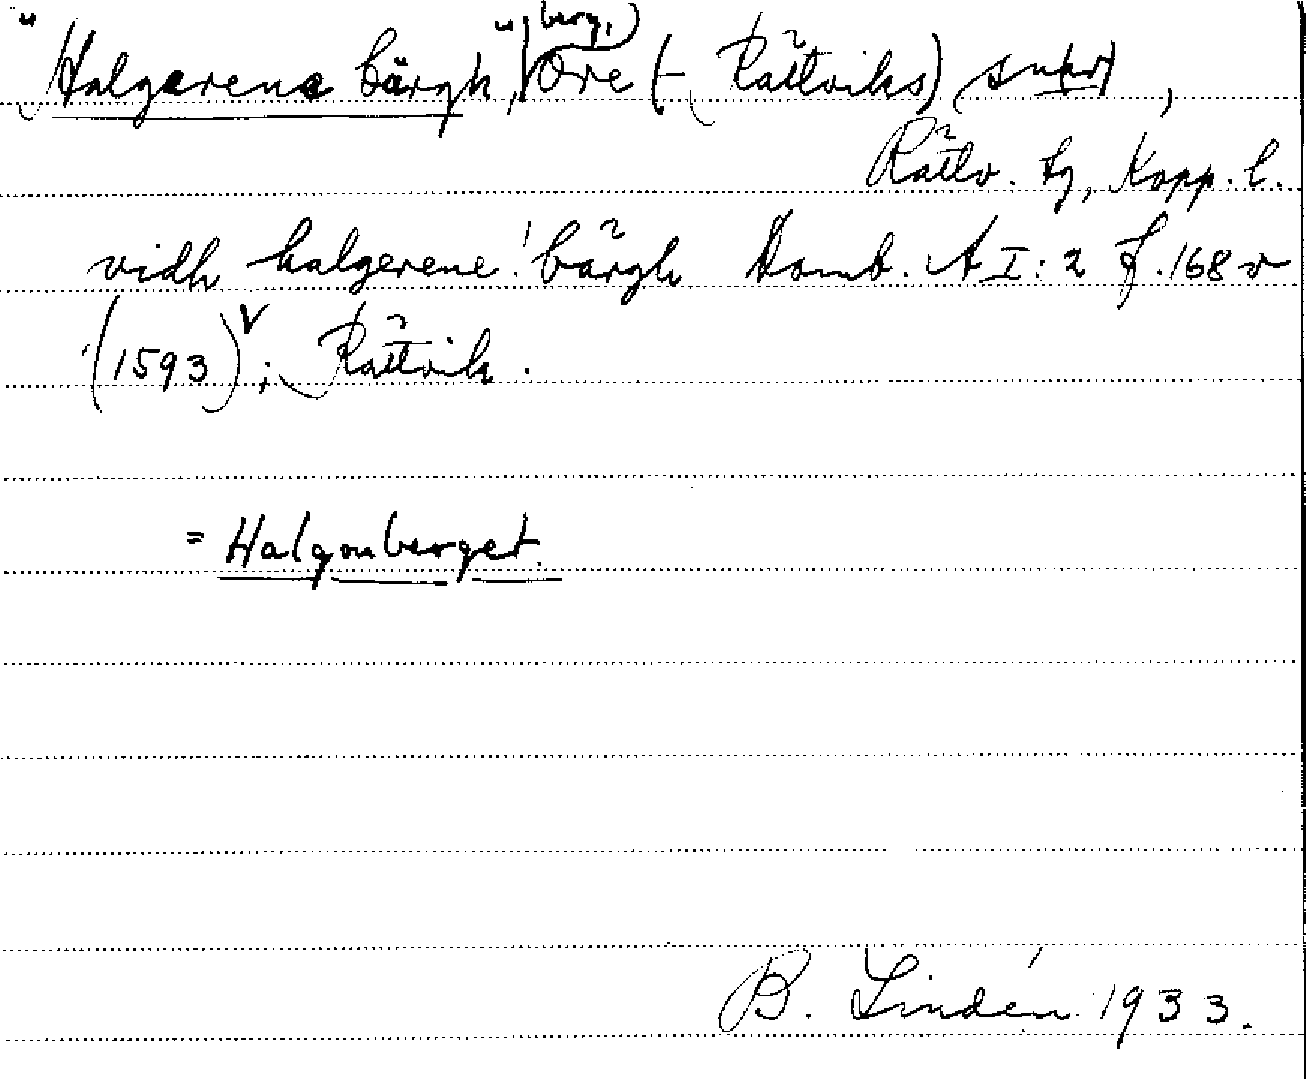 "Halgerene bärgh", berg, Ore (- Rättviks)
Rättv. tg, Kopp. l.
vidh halgerene! bärgh Domb. A I: 2 f. 168 v
(1593)v; Rättvik.
= Halgonberget.
B. Lindén 1933.